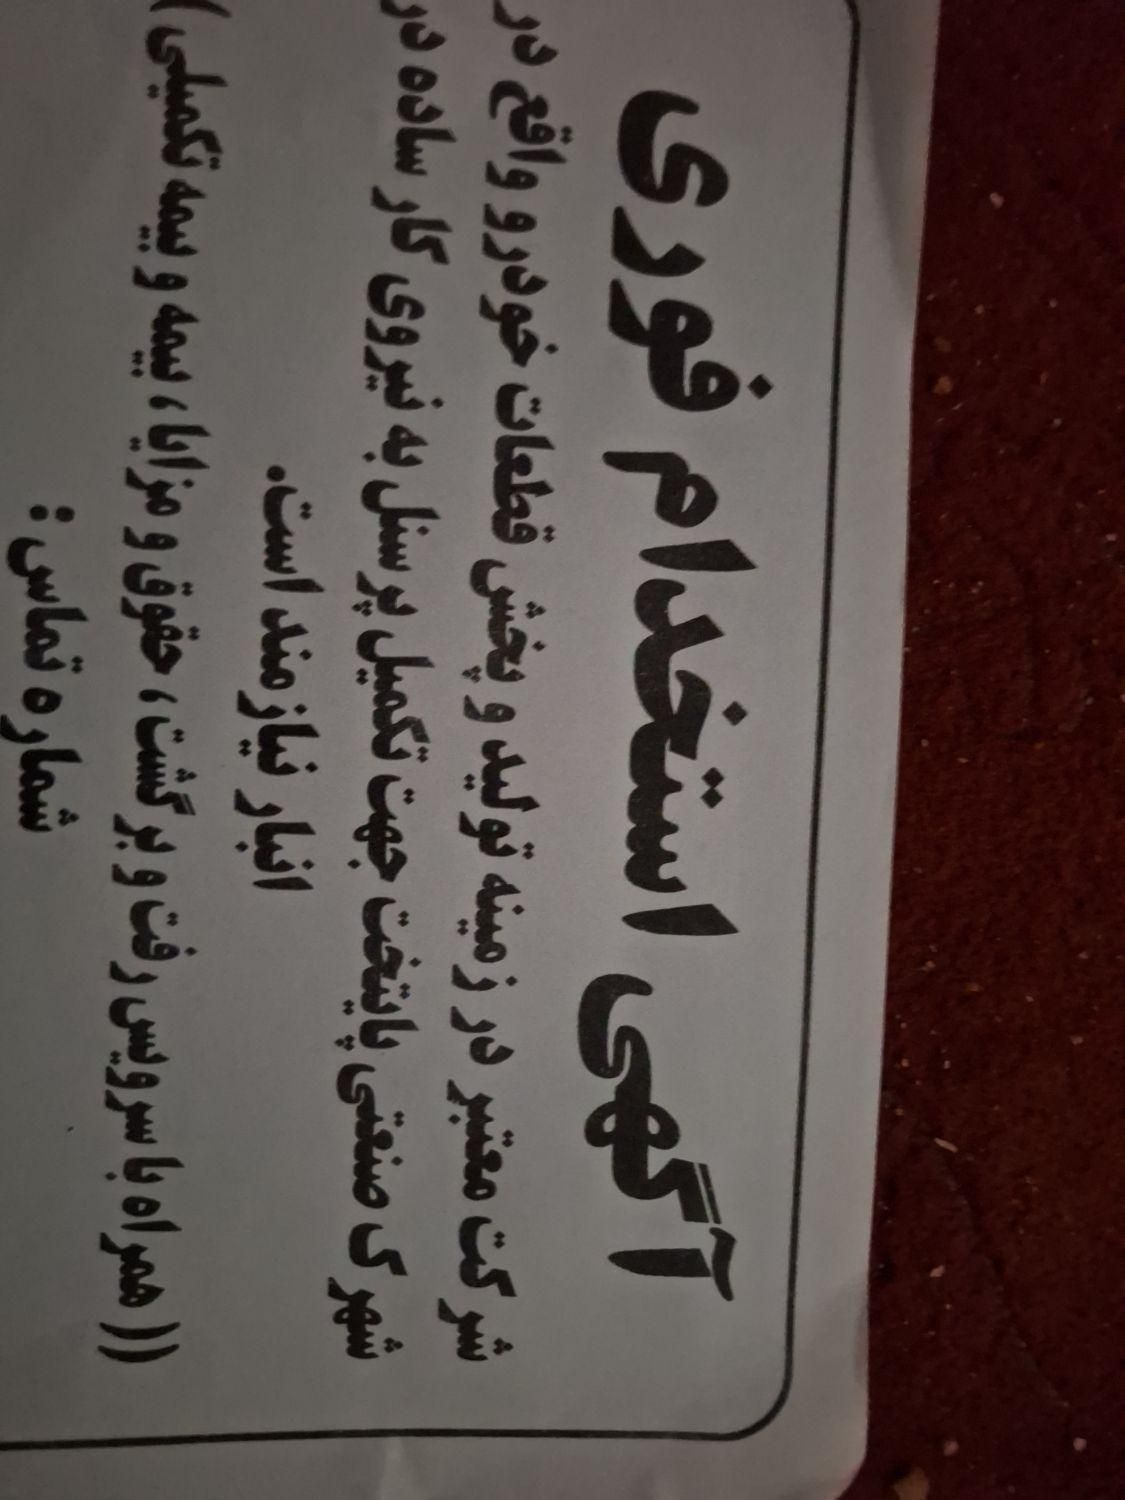 آگهی استخدام فوری
شرکت معتبر در زمینه تولید و پخش قطعات خودرو واقع در
شهرک صنعتی پایتخت جهت تکمیل پرسنل به نیروی کار ساده در
انبار نیازمند است.
(( همراه با سرویس رفت و برگشت، حقوق و مزایا، بیمه و بیمه تکمیلی )
شماره تماس :